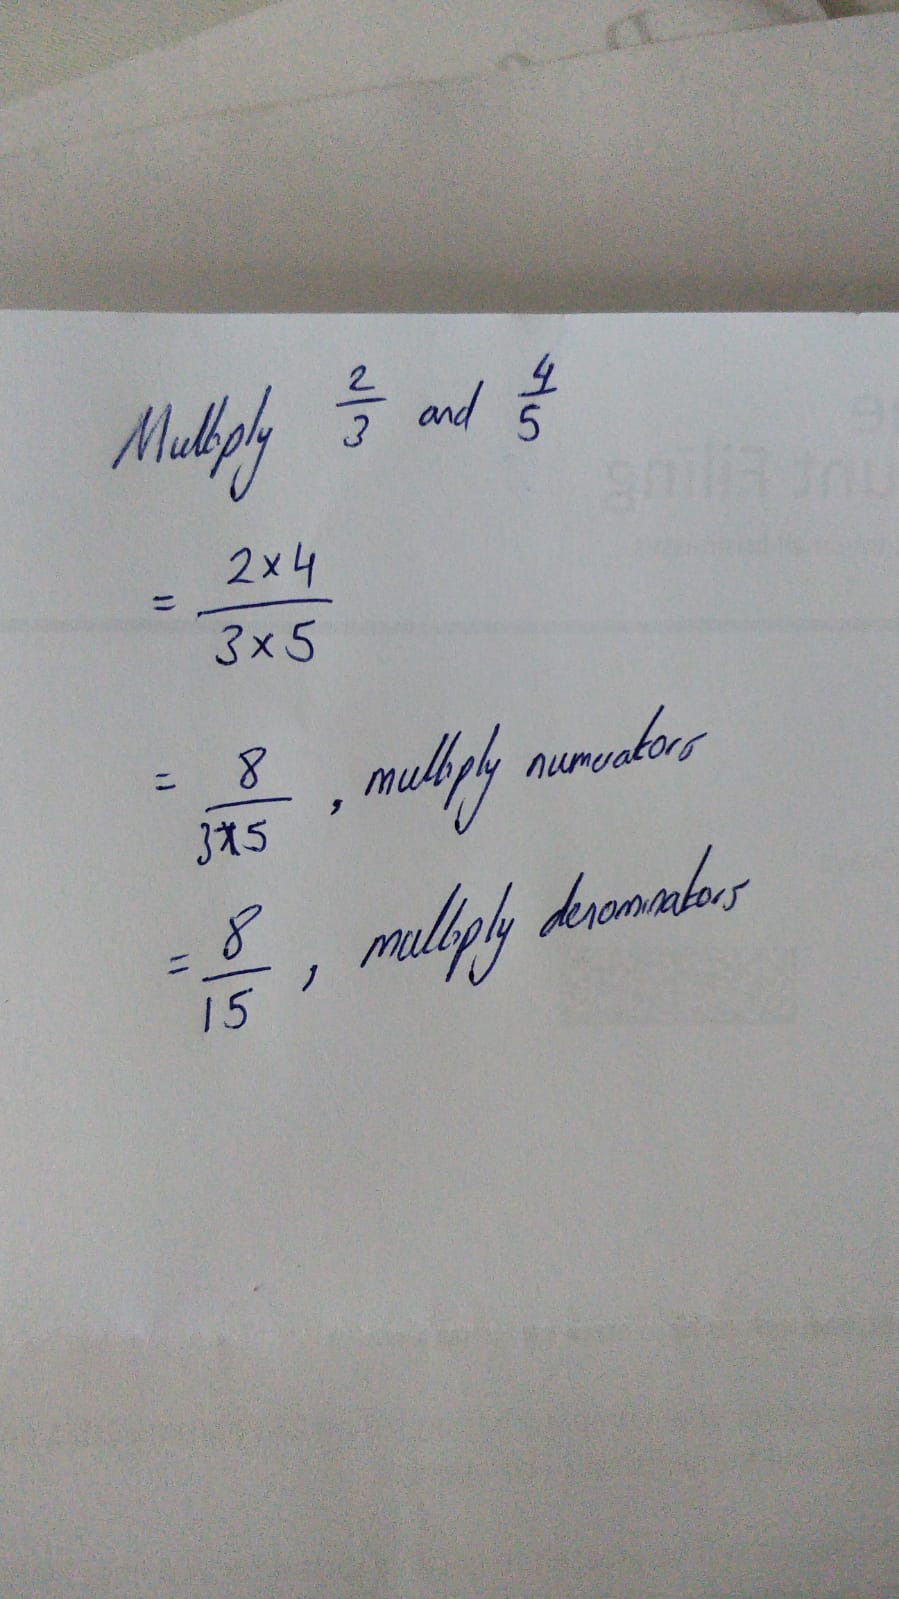 Multiply 2/3 and 4/5
= 2x4 / 3x5
= 8 / 3x5 , multiply numerators
= 8/15 , multiply denominators
unt Filing